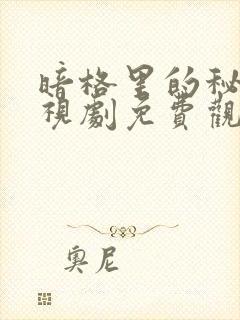 暗格里的秘
視劇免費觀
奧尼